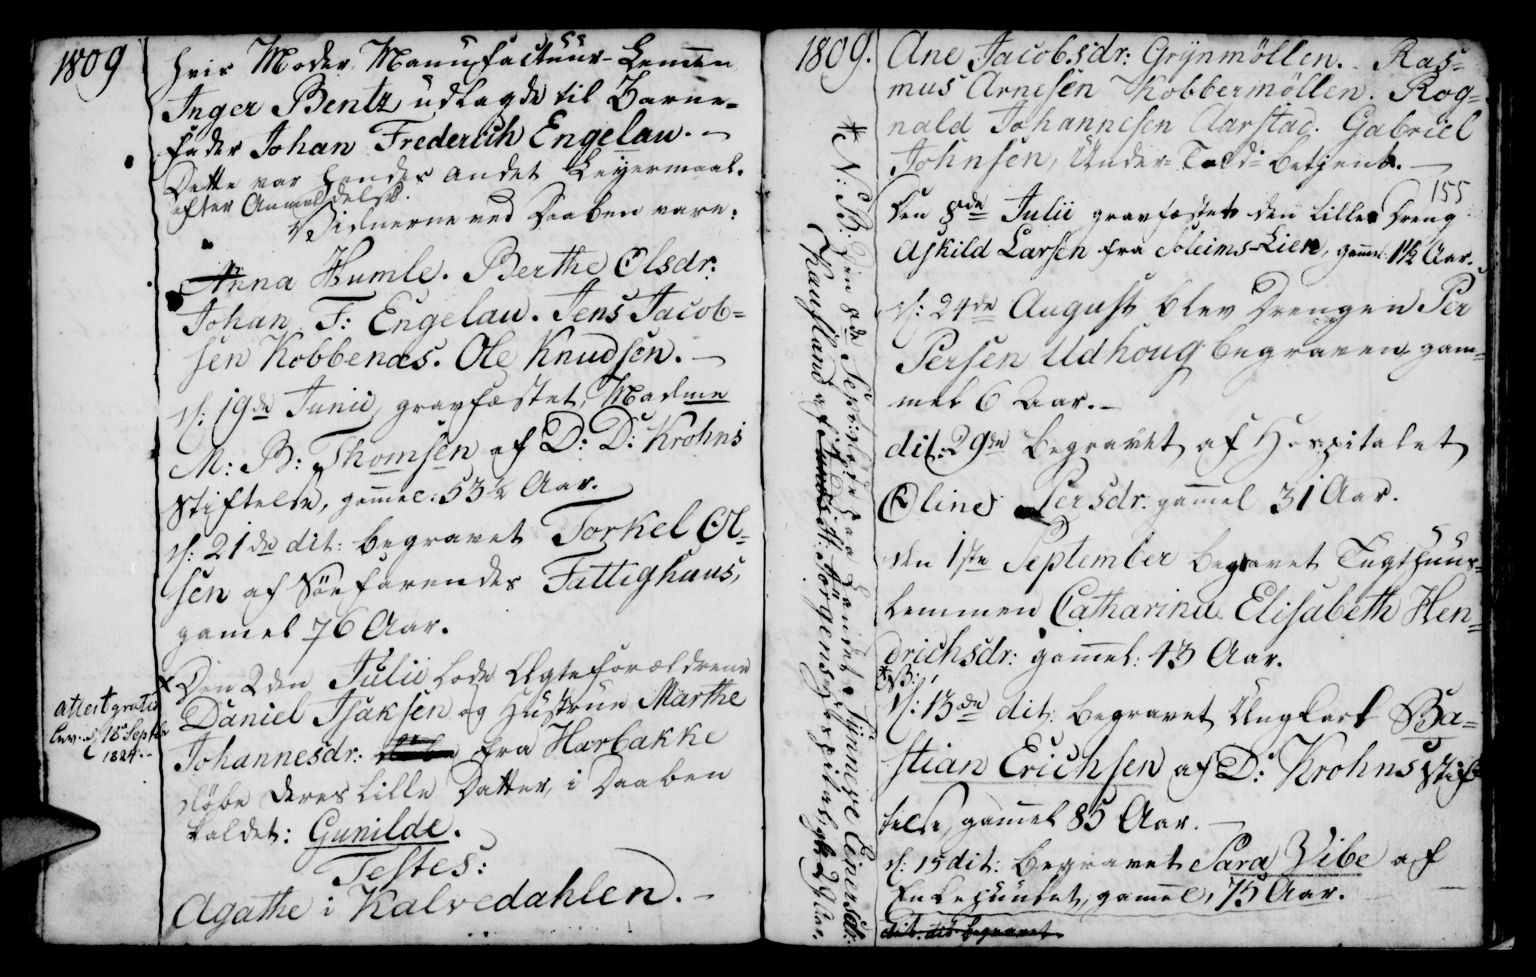 1809
hvis Moder Manufacteur-Lemmen
Inger Bentz udlagde til Barne-
fader Johan Frederich Engelau. —
Dette var hendes andet Leyermaal.
efter Anmeldelse.
Vidnerne ved Daaben vare:
Anna Humle. Berthe Olsdr:
Johan F: Engelau. Jens Jacob-
sen Kobbenæs. Ole Knudsen. —
d: 19de Junii, gravfæstet, Madme
M: B: Thomsen af D: D: Krohns
Stiftelse, gammel: 53½ Aar.
d: 21de dit: begravet Torkel Ol-
sen af Söefarendes Fattighuus,
gamel 76 Aar.
Den 2den Julii lode Ægteforældrene
Daniel Isaksen og Hustrue Marthe
Johannesdr: fra Harbakke
döbe deres lille Datter, i Daaben
kaldet: Gunilde.
Testes:
Agathe i Kalvedahlen. —
attest gratis
lev: d 18 Septbr
1824.-
1809.
* N: B: Den 8de September saa
Jörgens Hospital,
Ane Jacobsdr: Grynmöllen. Ras-
mus Arnesen Kobbermöllen. Rog-
nald Johannesen Aarstad. Gabriel
Johnsen, Under-Told-betjent. —
155
Den 8de Julii gravfæstet den lille Dreng
Askild Larsen fra Soleims-Lien, gamel 1½ Aar.
d: 24de August blev Drengen Per
Persen Udhoug begraven, gam-
mel 6 Aar. —
dit: 29de begravet af Hospitalet
Oline Persdr: gammel 31 Aar.
den 1ste September begravet Tugthuus-
lemmen Catharina Elisabeth Hen-
drichsdr: gammel: 43 Aar.
*NB:
d: 13de dit: begravet Ungkarl Ba-
stian Erichsen af D: Krohns Stif-
telse, gammel 85 Aar. —
d: 15 dit: begravet Sara Vibe af
Enkehuuset, gammel, 75 Aar.
dit: dit begravet